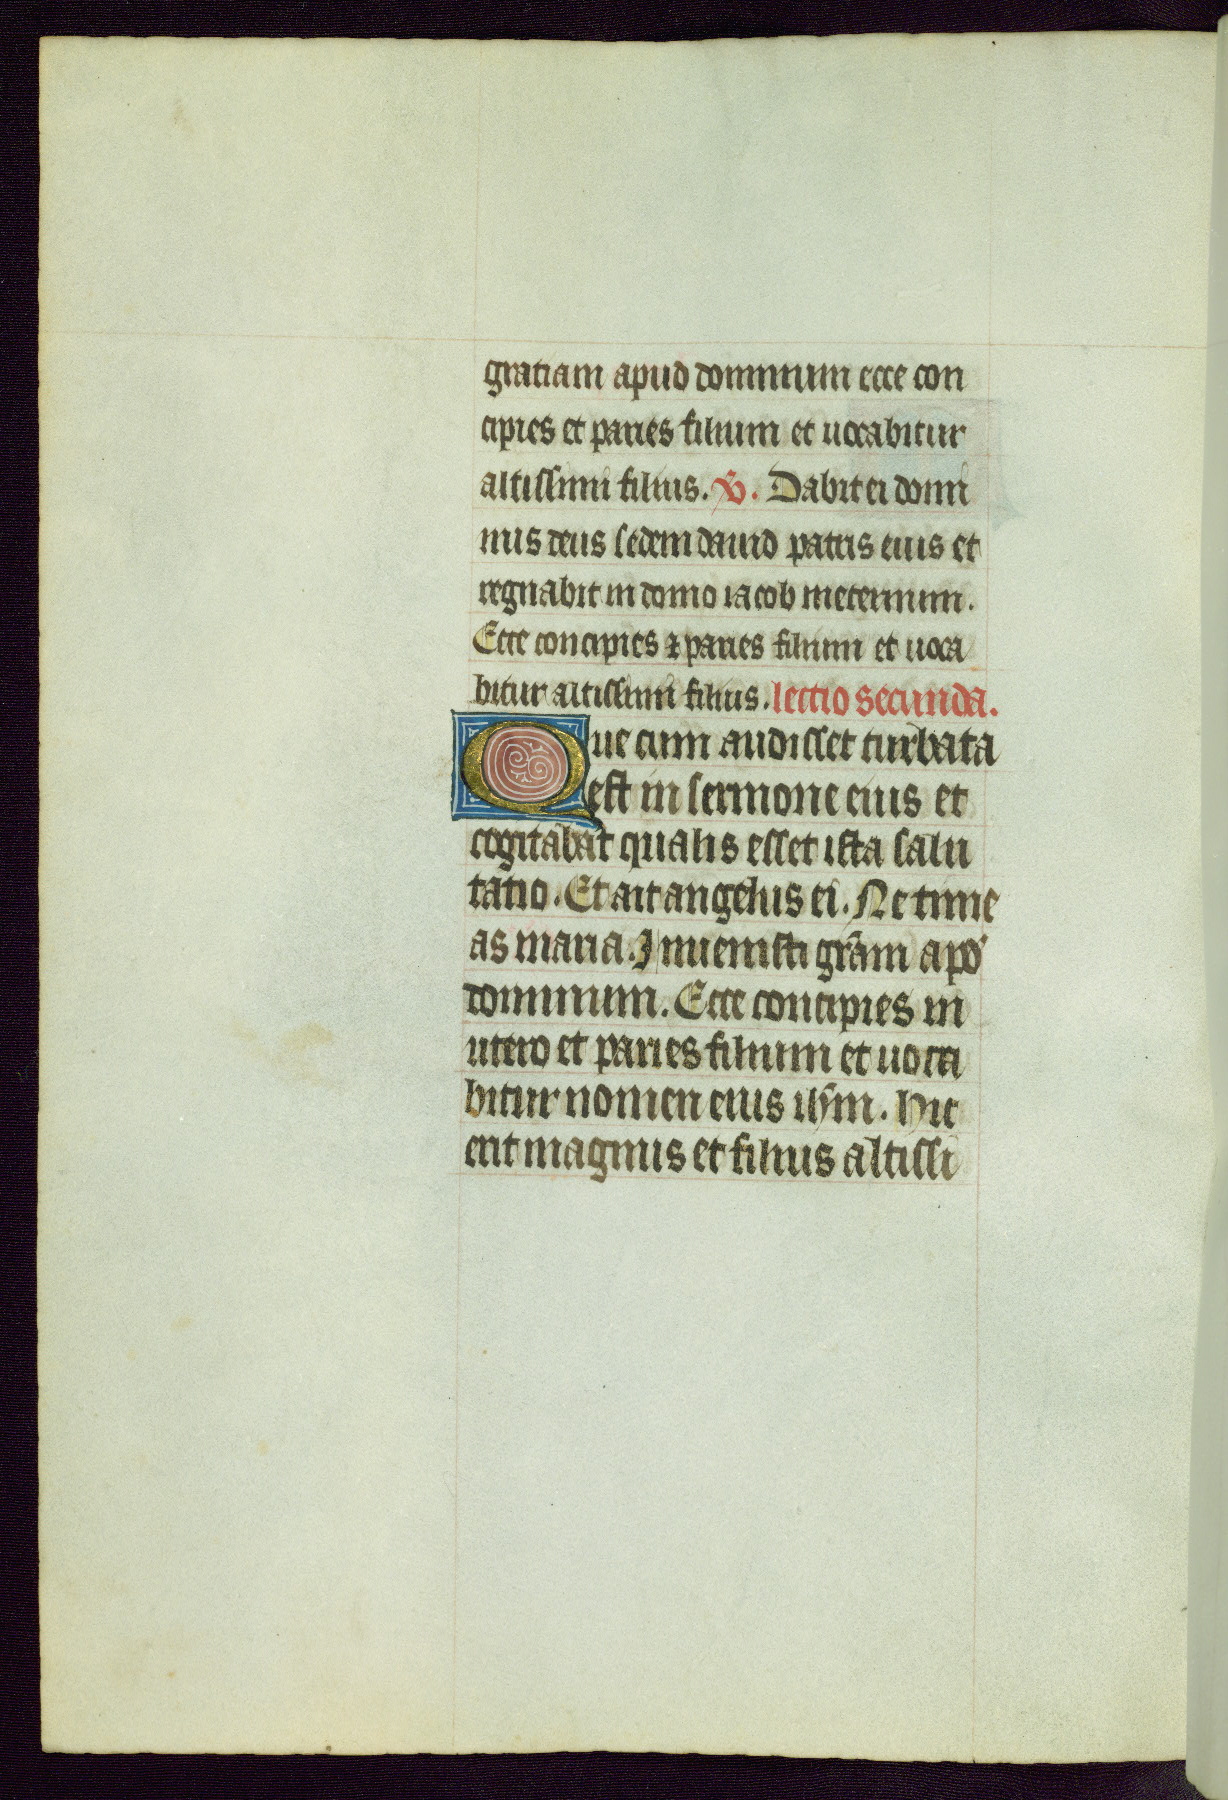 gratiam apud dominum ecce con
cipies et paries filium et uocabitur
altissimi filius. V. Dabit ei domi
nus deus sedem dauid patris eius et
regnabit in domo iacob ineternum.
Ecce concipies ⁊ paries filium et uoca
bitur altissimi filius. lectio secunda.
Que cum audisset turbata
est in sermone eius et
cogitabat qualis esset ista salu
tatio. Et ait angelus ei. Ne time
as maria. Inuenisti gr̄am apđ
dominum. Ecce concipies in
utero et paries filium et uoca
bitur nomen eius ih̄m. hic
erit magnus et filius altissi